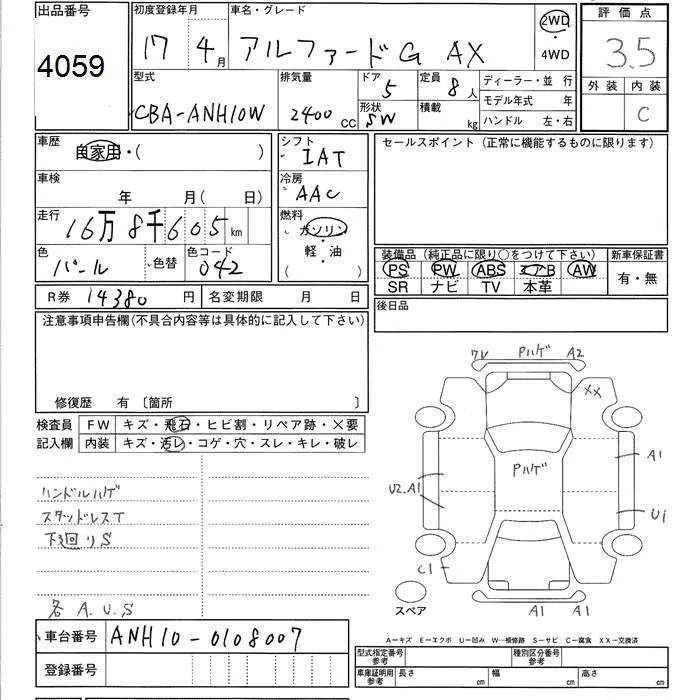 出品番号
4059
初度登録年月
17 4月
車名・グレード
アルファードG AX
2WD
・
4WD
評価点
3.5
外装 内装
C
型式
CBA-ANH10W
排気量
2400 CC
ドア
5
形状
SW
定員
8人
積載
kg
ディーラー・並 行
モデル年式 年
ハンドル 左・右
車歴
自家用・( )
シフト
IAT
車検
年 月(日)
冷房
AAC
走行
16万8千605km
燃料
ガソリン
軽・油
( )
色
パール
色替
色コード
042
セールスポイント(正常に機能するものに限ります)
装備品(純正品に限り○をつけて下さい)
PS PW ABS エアB AW
SR ナビ TV 本革
新車保証書
有・無
後日品
R券 14380円
名変期限 月 日
注意事項申告欄(不具合内容等は具体的に記入して下さい)
修復歴 有 〔箇所 〕
検査員
記入欄
FW キズ・飛石・ヒビ割・リペア跡・×要
内装 キズ・汚レ・コゲ・穴・スレ・キレ・破レ
ハンドルハゲ
スタッドレスT
下回りS
各A.U.S
Pハゲ
A2
XX
Pハゲ
A1
U2.A1
U1
C1
A1 A1
スペア
A−キズ E−エクボ U−凹み W−補修跡 S−サビ C−腐食 XX−交換済
車台番号 ANH10-0108007
登録番号
型式指定番号
参考
種別区分番号
参考
車庫証明用
参考
長さ cm
幅 cm
高さ cm